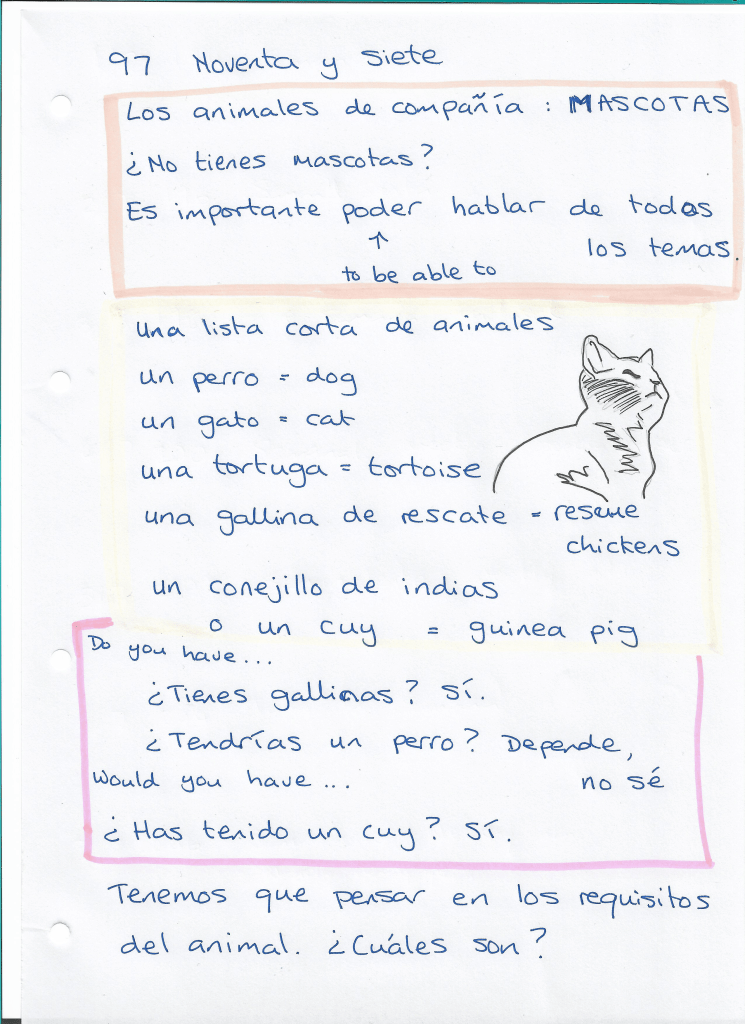 97 Noventa y siete
Los animales de compañía : MASCOTAS
¿No tienes mascotas?
Es importante poder hablar de todos
los temas.
↑
to be able to
una lista corta de animales
un perro = dog
un gato = cat
una tortuga = tortoise
una gallina de rescate = rescue
chickens
un conejillo de indias
o un cuy = guinea pig
Do you have...
¿Tienes gallinas? Sí.
¿Tendrías un perro? Depende,
no sé
Would you have...
¿Has tenido un cuy? Sí.
Tenemos que pensar en los requisitos
del animal. ¿Cuáles son?